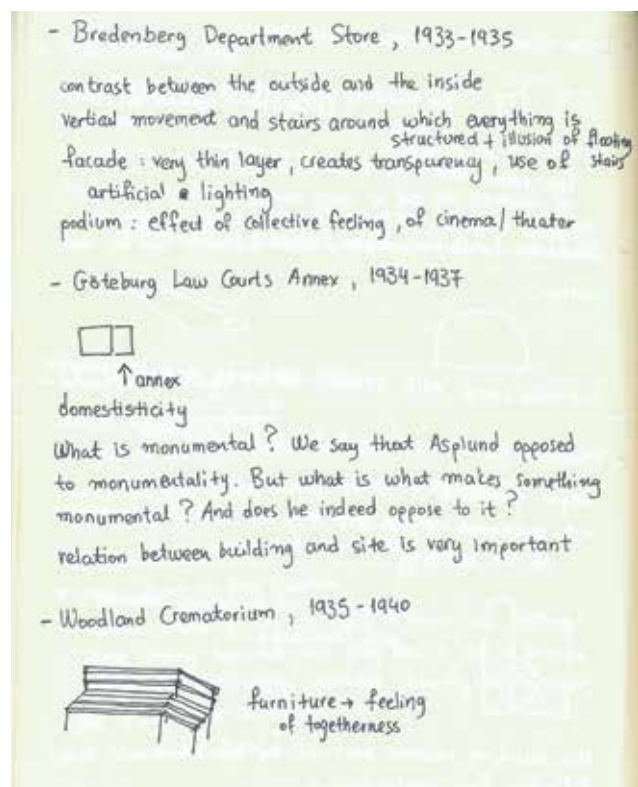 - Bredenberg Department Store, 1933-1935
contrast between the outside and the inside
vertical movement and stairs around which everything is
structured + illusion of floating
facade : very thin layer, creates transparency, use of stairs
artificial lighting
podium : effect of collective feeling, of cinema/theater
- Göteburg Law Courts Annex, 1934-1937
↑ annex
domestisticity
What is monumental? We say that Asplund opposed
to monumentality. But what is what makes something
monumental? And does he indeed oppose to it?
relation between building and site is very important
- Woodland Crematorium, 1935-1940
furniture → feeling
of togetherness